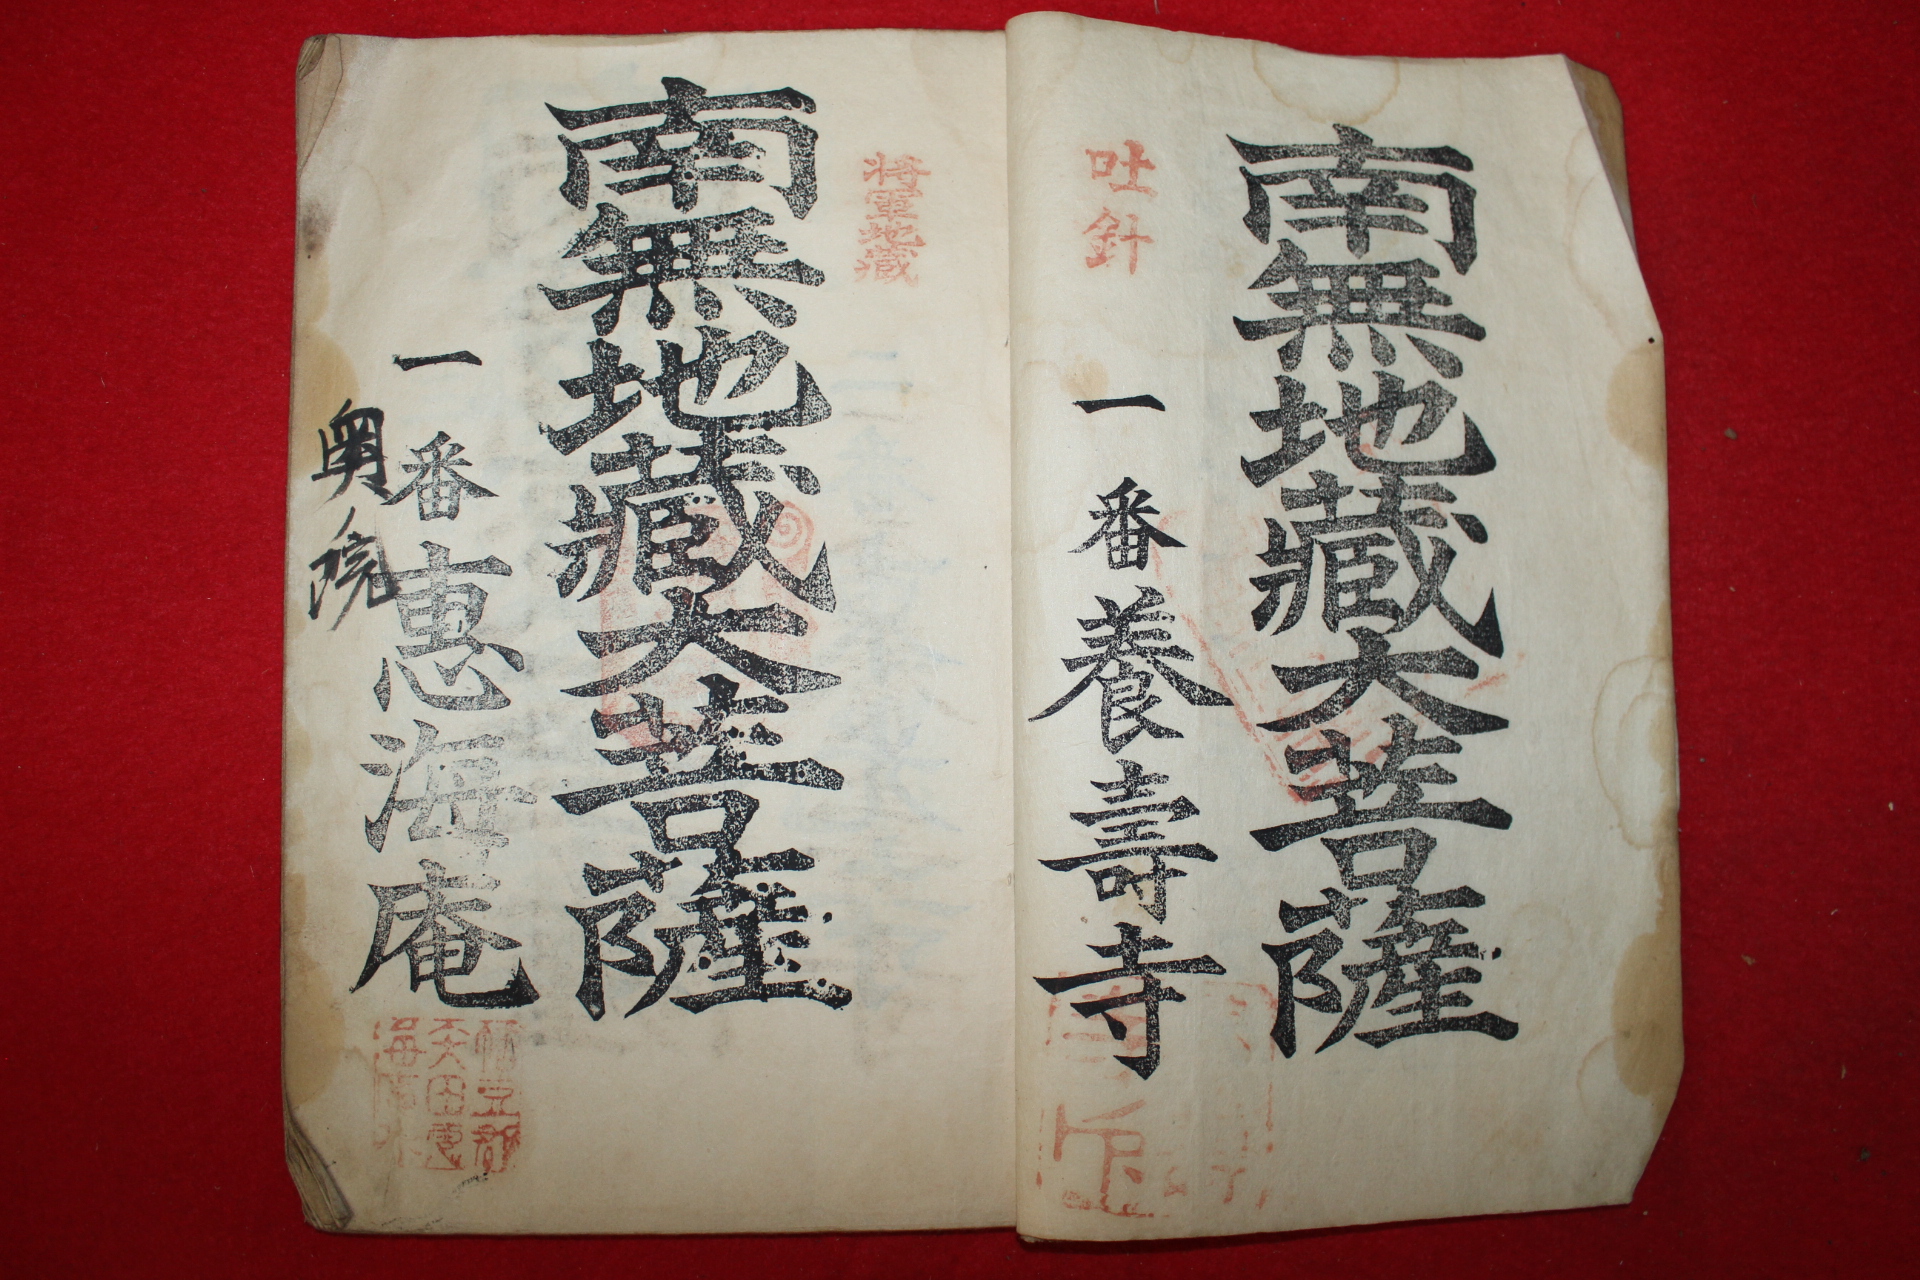 南無地藏大菩薩
吐針
一番養壽寺
将軍地蔵
南無地藏大菩薩
一番惠海庵
奥院